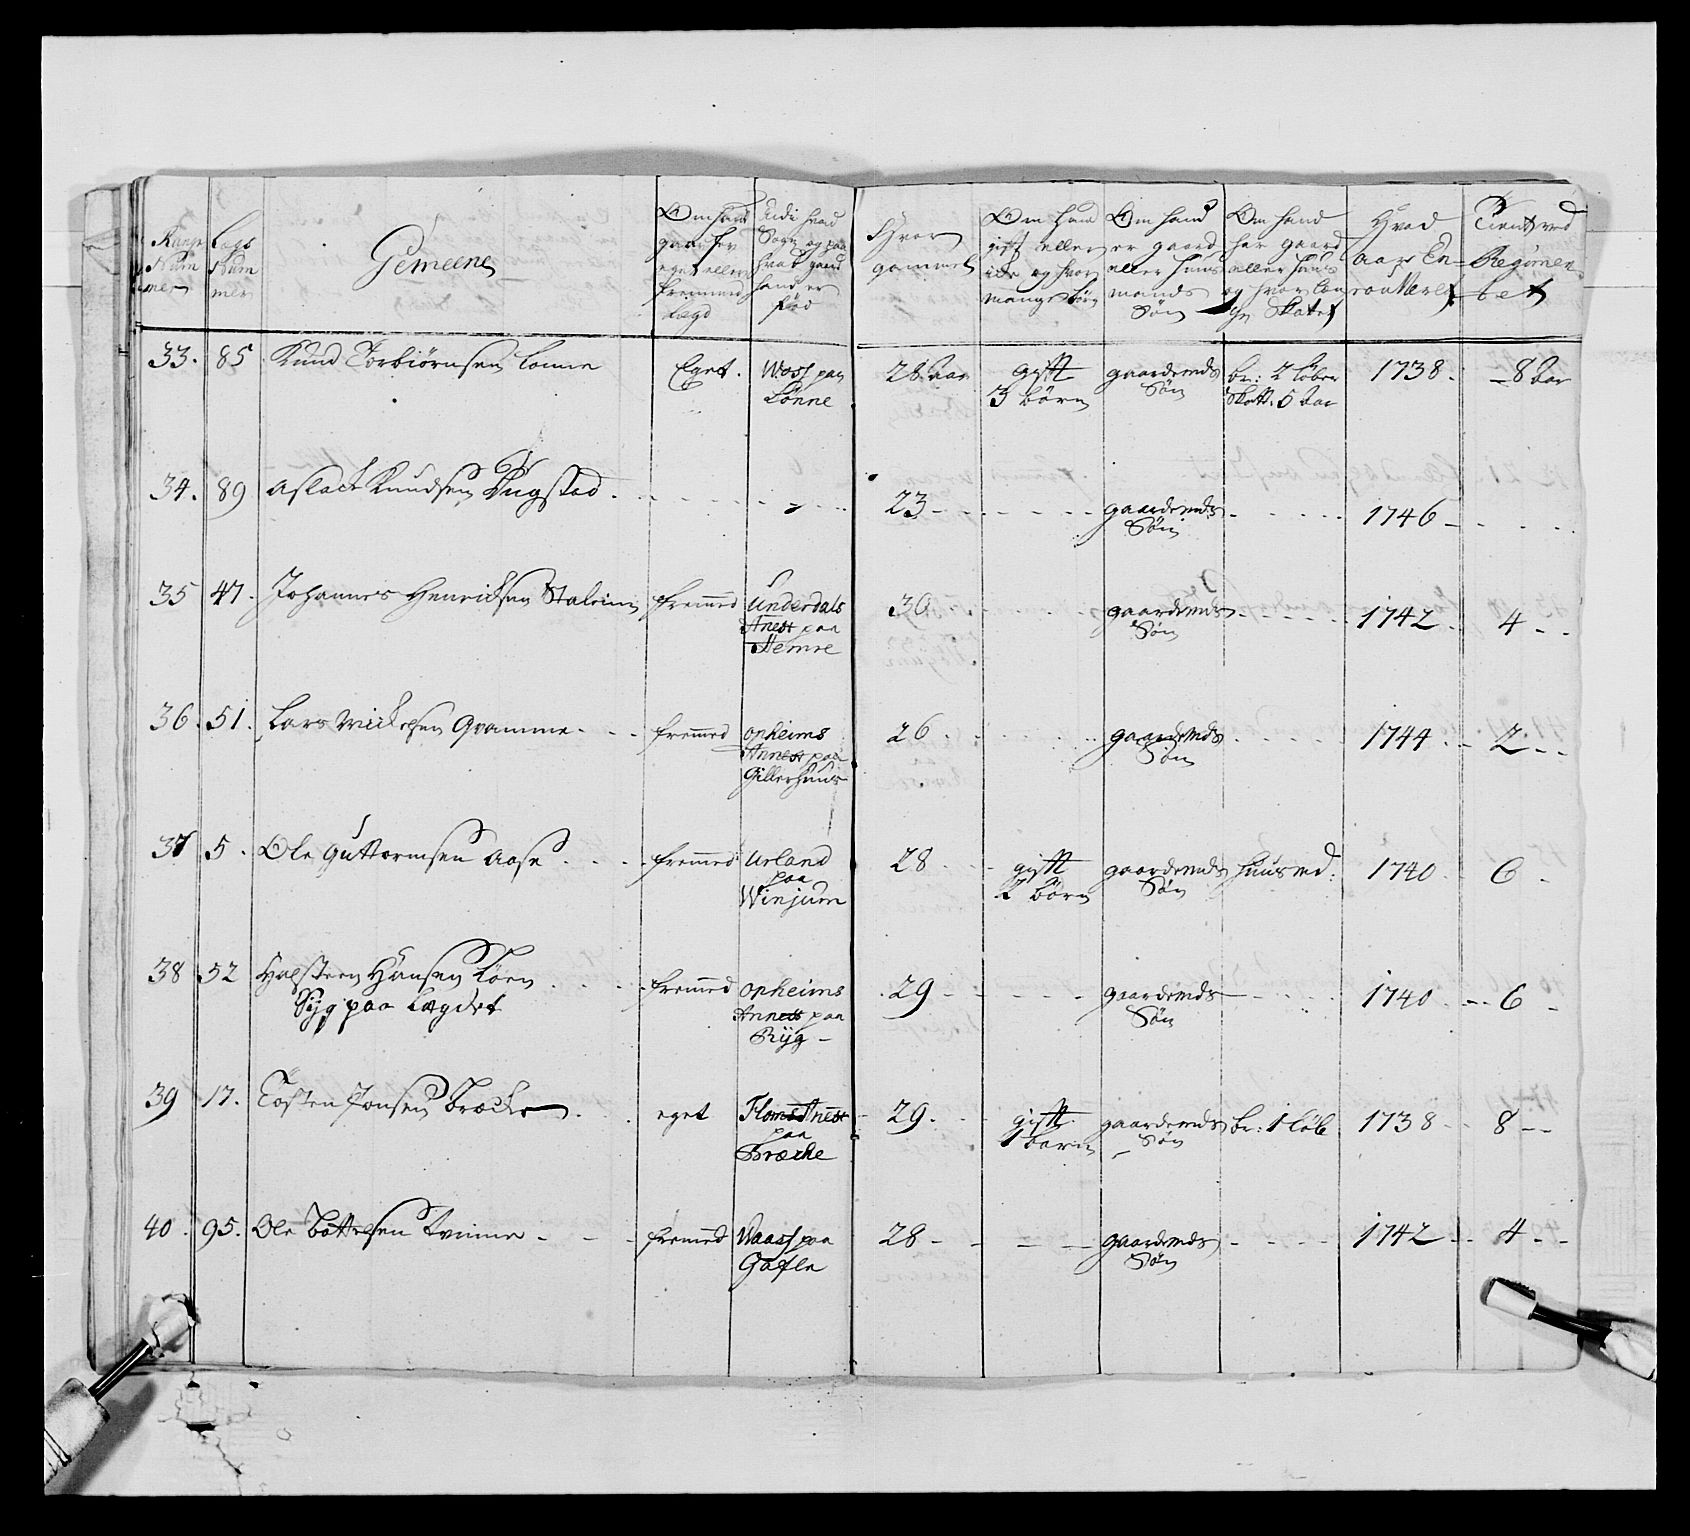 Comp Num mer | Legs Num mer | Gemeene | Om hand gaar for eget eller fremmed Lægd | Udi hvad Sogn og paa hvad gaard hand er fød | Hvor gammel | Om hand gift eller icke og hvor mange børn | Om hand er gaard eller huus mands Søn | Om hand har gaard eller huus og hvor | Hvad Aar Enroulleret | Tient ved Regimentet
33. | 85 | Knud Torbiörnsen Lönne | Eget. | Woss paa Lönne | 28 Aar | gift 3 börn | gaardmds Søn | br: 2 Löber Skatt. 5 | 1738. | 8 Aar
34. | 89 | Aslack Knudsen Dugstad | 23 | gaardmds Søn | 1746
35 | 47. | Johannes Henricksen Stalem | fremmed | Underdals Anext paa Hemre | 30 | gaardmds Søn | 1742 | 4
36. | 51. | Lars Mickelsen Qvamme | fremmed | Opheims Annext paa Gillerhuus | 26 | gaardmds Søn | 1744 | 2
37 | 5. | Ole Guttormsen Aase | fremmed | Urland paa Winjum | 28 | gift 2 börn | gaardmds Søn | huusmd: | 1740 | 6
38 | 52 | Halsteen Hansen Löen
Syg paa Lægdet | fremmed | Opheims Annext paa Ryg | 29 | gaardmds Søn | 1740 | 6
39 | 17. | Tosten Jonsen Brecke | eget | Floms Anext paa Bræche | 29. | gift 1 barn | gaardmds Søn | br: 1 Löb | 1738 | 8
40. | 95. | Ole Bottelsen Tvinne | fremmed | Waass paa Gafle | 28 | gaardmds Søn | 1742 | 4